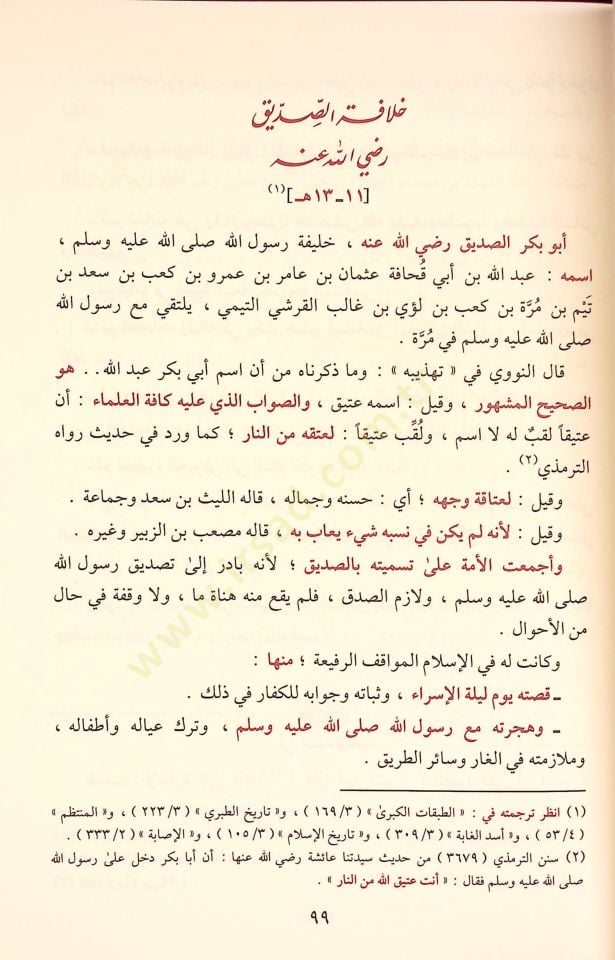 خلافة الصِّدِّيق
رضي الله عنه
[١١-١٣هـ](١)
أبو بكر الصديق رضي الله عنه ، خليفة رسول الله صلى الله عليه وسلم ،
اسمه : عبد الله بن أبي قُحافة عثمان بن عامر بن عمرو بن كعب بن سعد بن
تَيْم بن مُرَّة بن كعب بن لؤي بن غالب القرشي التيمي ، يلتقي مع رسول الله
صلى الله عليه وسلم في مُرَّة .
قال النووي في « تهذيبه » : وما ذكرناه من أن اسم أبي بكر عبد الله . . هو
الصحيح المشهور ، وقيل : اسمه عتيق ، والصواب الذي عليه كافة العلماء : أن
عتيقاً لقبٌ له لا اسم ، ولُقِّب عتيقاً : لعتقه من النار ؛ كما ورد في حديث رواه
الترمذي(٢) .
وقيل : لعتاقة وجهه ؛ أي : حسنه وجماله ، قاله الليث بن سعد وجماعة .
وقيل : لأنه لم يكن في نسبه شيء يعاب به ، قاله مصعب بن الزبير وغيره .
وأجمعت الأمة علىٰ تسميته بالصديق ؛ لأنه بادر إلىٰ تصديق رسول الله
صلى الله عليه وسلم ، ولازم الصدق ، فلم يقع منه هناة ما ، ولا وقفة في حال
من الأحوال .
وكانت له في الإسلام المواقف الرفيعة ؛ منها :
ـ قصته يوم ليلة الإسراء ، وثباته وجوابه للكفار في ذلك .
ـ وهجرته مع رسول الله صلى الله عليه وسلم ، وترك عياله وأطفاله ،
وملازمته في الغار وسائر الطريق .
(١) انظر ترجمته في : « الطبقات الكبرىٰ » ( ١٦٩/٣ ) ، و« تاريخ الطبري » ( ٢٢٣/٣ ) ، و« المنتظم »
( ٥٣/٤ ) ، و« أسد الغابة » ( ٣٠٩/٣ ) ، و« تاريخ الإسلام » ( ١٠٥/٣ ) ، و« الإصابة » ( ٣٣٣/٢ ) .
(٢) سنن الترمذي ( ٣٦٧٩ ) من حديث سيدتنا عائشة رضي الله عنها : أن أبا بكر دخل علىٰ رسول الله
صلى الله عليه وسلم فقال : « أنت عتيق الله من النار » .
٩٩
www.irsad.com.tr